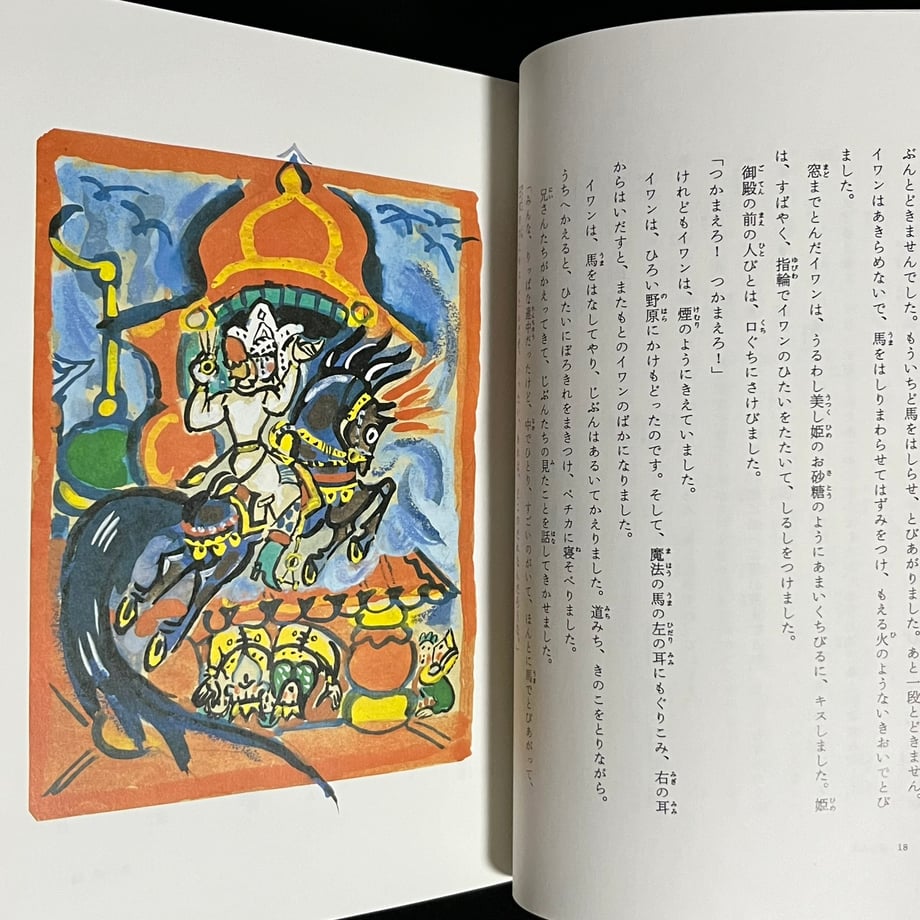 ぶんとどきませんでした。もういちど馬をはしらせ、とびあがりました。あと一段とどきません。
イワンはあきらめないで、馬をはしりまわらせてはずみをつけ、もえる火のようないきおいでとび
ました。
窓までとんだイワンは、うるわし美し姫のお砂糖のようにあまいくちびるに、キスしました。姫
は、すばやく、指輪でイワンのひたいをたたいて、しるしをつけました。
御殿の前の人びとは、口ぐちにさけびました。
「つかまえろ! つかまえろ!」
けれどもイワンは、煙のようにきえていました。
イワンは、ひろい野原にかけもどったのです。そして、魔法の馬の左の耳にもぐりこみ、右の耳
からはいだすと、またもとのイワンのばかになりました。
イワンは、馬をはなしてやり、じぶんはあるいてかえりました。道みち、きのこをとりながら。
うちへかえると、ひたいにぼろきれをまきつけ、ペチカに寝そべりました。
兄さんたちがかえってきて、じぶんたちの見たことを話してきかせました。
「みんな、りっぱな連中だったけど、中でひとり、すごいのがいて、ほんとに馬でとびあがって、
18